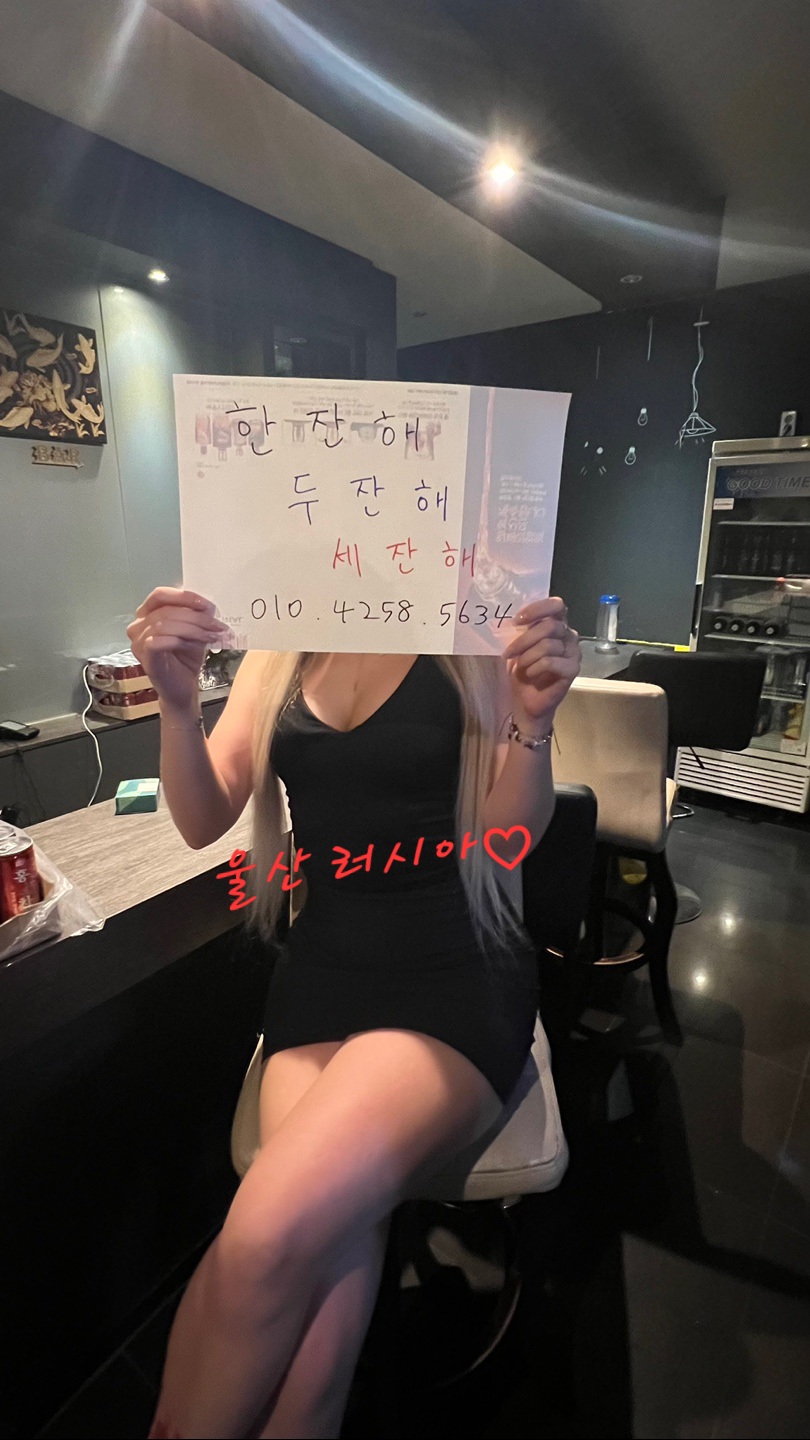 한 잔 해
두 잔 해
세 잔 해
010.4258.5634
울산 러시아♡
GOOD TIME